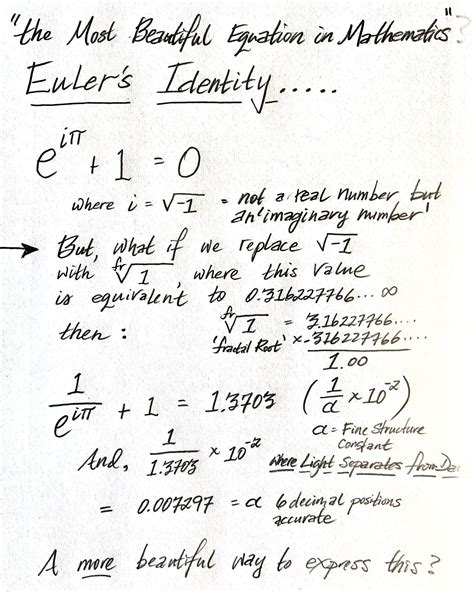 "the Most Beautiful Equation in Mathematics"?
Euler's Identity.....
e^{iπ} + 1 = 0
where i = √-1 = not a real number but
an 'imaginary number'
→ But, what if we replace √-1
with fr√1, where this value
is equivalent to 0.316227766... ∞
then: fr√1 = 3.16227766....
'fractal Root' × .316227766....
1.00
1/e^{iπ} + 1 = 1.3703 (1/α × 10^{-2})
α = Fine Structure
Constant
And, 1/1.3703 × 10^{-2} where Light Separates from
= 0.007297 = α 6 decimal positions
accurate
A more beautiful way to express this?